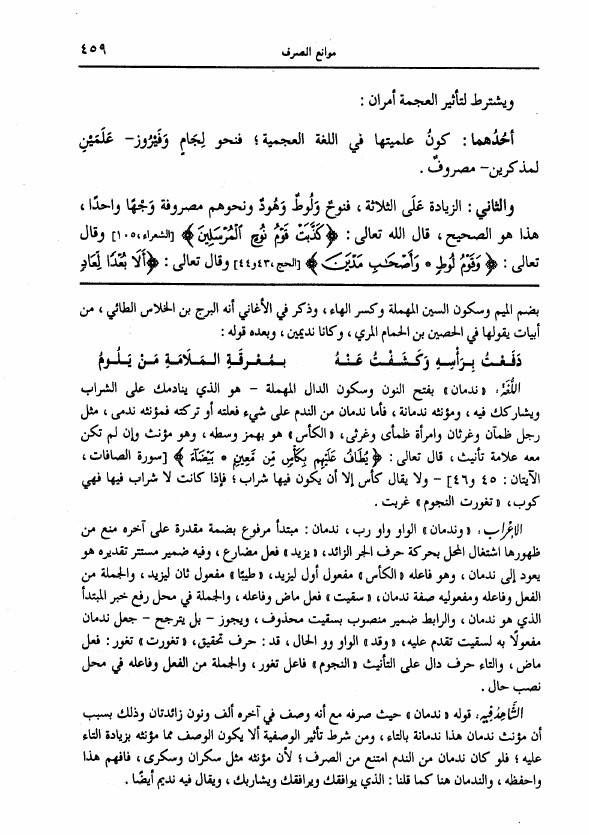 موانع الصرف
٤٥٩
ويشترط لتأثير العجمة أمران :
أحَدُهما : كونُ علميتها في اللغة العجمية ؛ فنحو لِجَامٍ وَفَيْرُوز – عَلَمَيْنِ
لمذكرين – مصروفٌ .
والثاني : الزيادة عَلَى الثلاثة ، فنوحٌ وَلُوطٌ وَهُودٌ ونحوهم مصروفة وَجْهًا واحدًا ،
هذا هو الصحيح ، قال الله تعالى : ﴿ كَذَّبَتْ قَوْمُ نُوحٍ الْمُرْسَلِينَ ﴾ [الشعراء، ١٠٥] وقال
تعالى : ﴿ وَقَوْمُ لُوطٍ * وَأَصْحَابِ مَدْيَنَ ﴾ [الحج، ٤٣ و٤٤] وقال تعالى : ﴿ أَلَا بُعْدًا لِعَادٍ
بضم الميم وسكون السين المهملة وكسر الهاء ، وذكر في الأغاني أنه البرج بن الخلاس الطائي ، من
أبيات يقولها في الحصين بن الحمام المري ، وكانا نديمين ، وبعده قوله :
دَفَعْتُ بِرَأْسِهِ وَكَشَفْتُ عَنْهُ بِمُعْرِقَةِ الْمَلَامَةِ مَنْ يَلُومُ
اللُّغَةُ: « ندمان » بفتح النون وسكون الدال المهملة – هو الذي ينادمك على الشراب
ويشاركك فيه ، ومؤنثه ندمانة ، فأما ندمان من الندم على شيء فعلته أو تركته فمؤنثه ندمى ، مثل
رجل ظمآن وغرثان وامرأة ظمأى وغرثى ، « الكأس » هو بهمز وسطه ، وهو مؤنث وإن لم تكن
معه علامة تأنيث ، قال تعالى : ﴿ يُطَافُ عَلَيْهِم بِكَأْسٍ مِّن مَّعِينٍ * بَيْضَآءَ ﴾ [سورة الصافات ،
الآيتان : ٤٥ و٤٦] – ولا يقال كأس إلا أن يكون فيها شراب ؛ فإذا كانت لا شراب فيها فهي
كوب ، « تغورت النجوم » غربت .
الإعراب: « وندمان » الواو واو رب ، ندمان : مبتدأ مرفوع بضمة مقدرة على آخره منع من
ظهورها اشتغال المحل بحركة حرف الجر الزائد ، « يزيد » فعل مضارع ، وفيه ضمير مستتر تقديره هو
يعود إلى ندمان ، وهو فاعله « الكأس » مفعول أول ليزيد ، « طيبًا » مفعول ثان ليزيد ، والجملة من
الفعل وفاعله ومفعوليه صفة ندمان ، « سقيت » فعل ماض وفاعله ، والجملة في محل رفع خبر المبتدأ
الذي هو ندمان ، والرابط ضمير منصوب بسقيت محذوف ، ويجوز – بل يترجح – جعل ندمان
مفعولًا به لسقيت تقدم عليه ، « وقد » الواو وو الحال ، قد : حرف تحقيق ، « تغورت » تغور : فعل
ماض ، والتاء حرف دال على التأنيث « النجوم » فاعل تغور ، والجملة من الفعل وفاعله في محل
نصب حال .
الشَّاهِدُ فِيهِ: قوله « ندمان » حيث صرفه مع أنه وصف في آخره ألف ونون زائدتان وذلك بسبب
أن مؤنث ندمان هذا ندمانة بالتاء ، ومن شرط تأثير الوصفية ألا يكون الوصف مما مؤنثه بزيادة التاء
عليه ؛ فلو كان ندمان من الندم امتنع من الصرف ؛ لأن مؤنثه مثل سكران وسكرى ، فافهم هذا
واحفظه ، والندمان هنا كما قلنا : الذي يوافقك ويرافقك ويشاربك ، ويقال فيه نديم أيضًا .